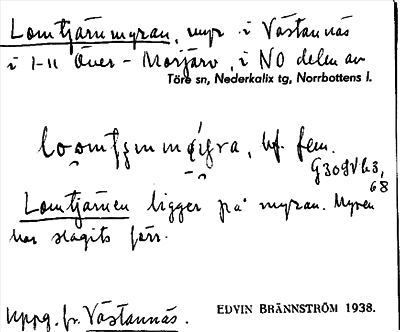 Lomtjärnmyran, myr i Västannäs
i I-II Över-Morjärv, i NO delen av
Töre sn, Nederkalix tg, Norrbottens l.
bf. fem.
Lomtjärnen ligger på myran. Myren
har slagits förr.
Uppg. fr. Västannäs.
EDVIN BRÄNNSTRÖM 1938.